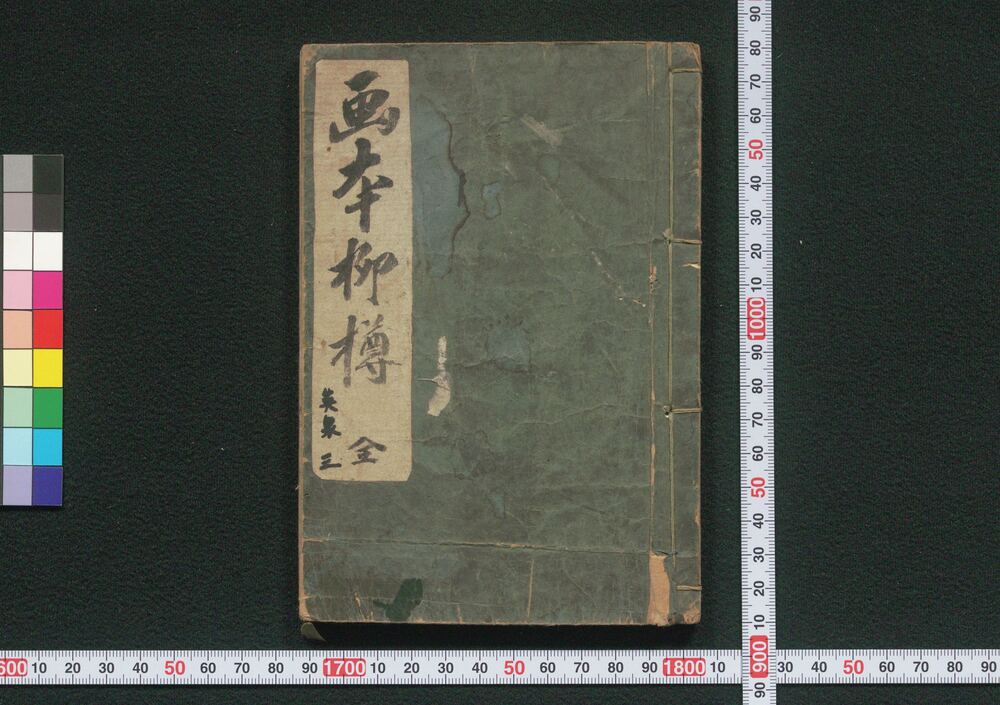 画本柳樽
全
英泉 三
90
80
70
60
50
40
30
20
10
1000
90
80
70
60
50
40
30
20
10
900
90
600 10 20 30 40 50 60 70 80 90 1700 10 20 30 40 50 60 70 80 90 1800 10 30 40 50 60 70 80 90